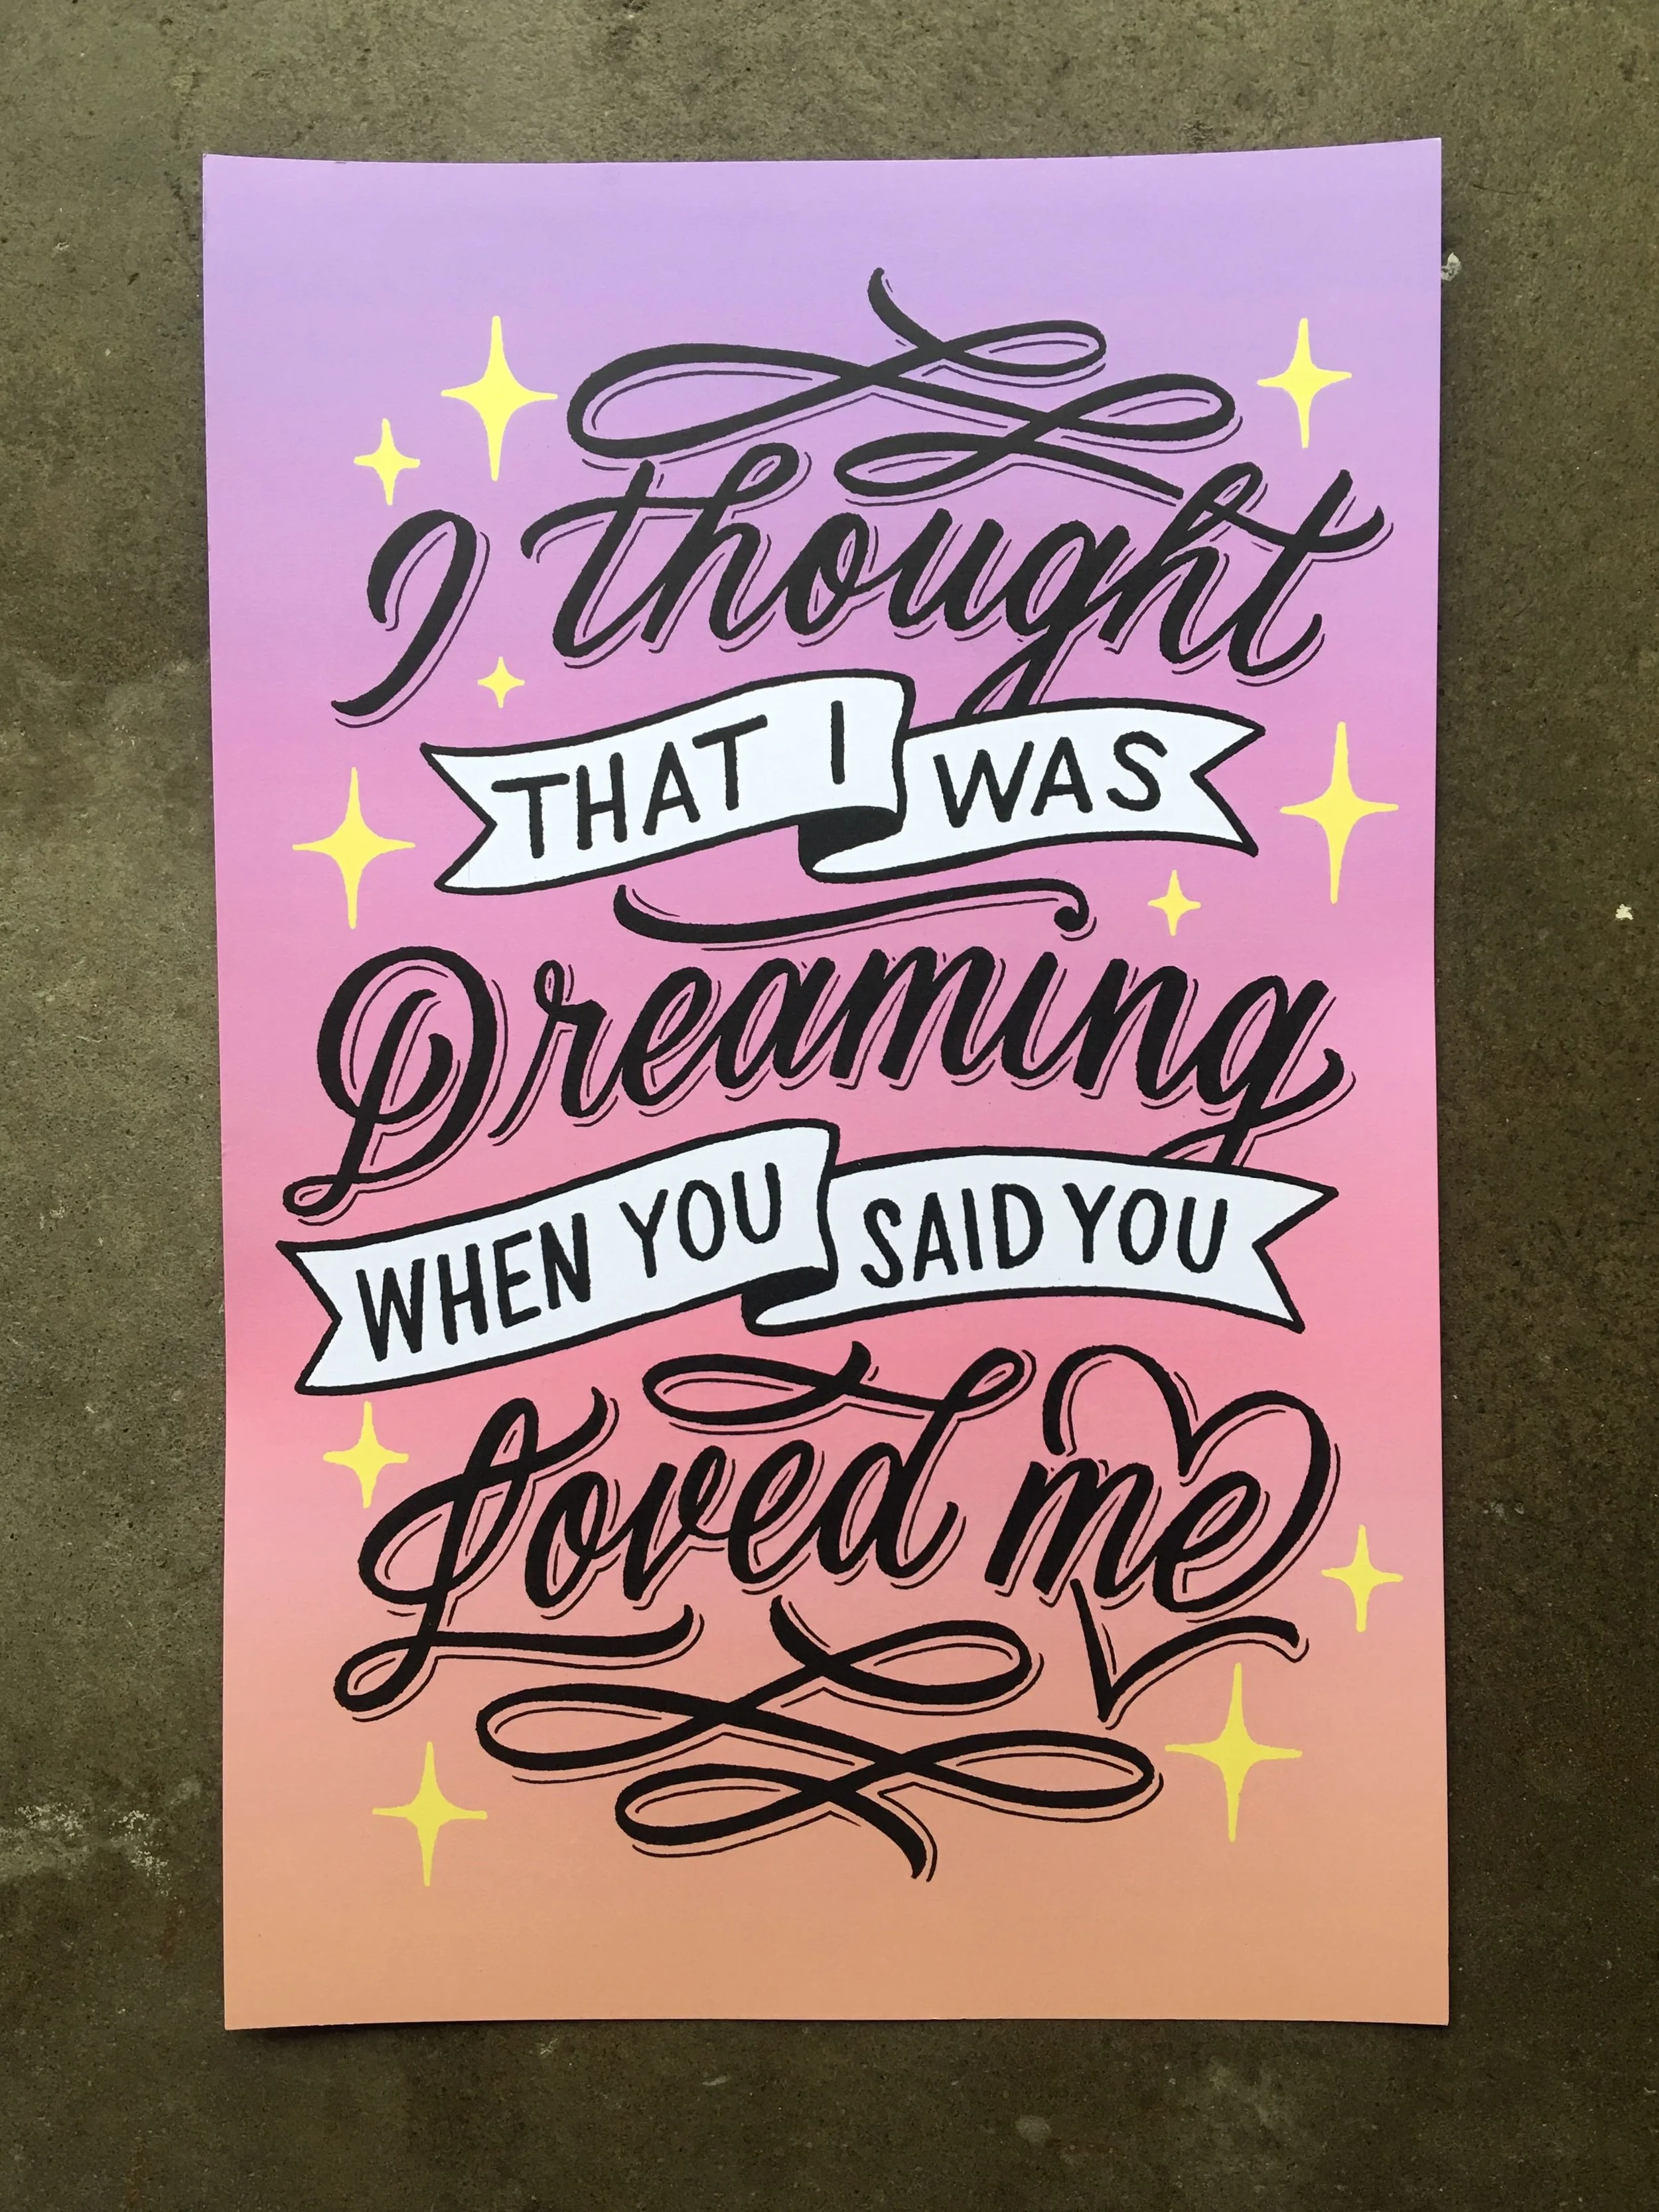 I thought
THAT I WAS
Dreaming
WHEN YOU SAID YOU
Loved me